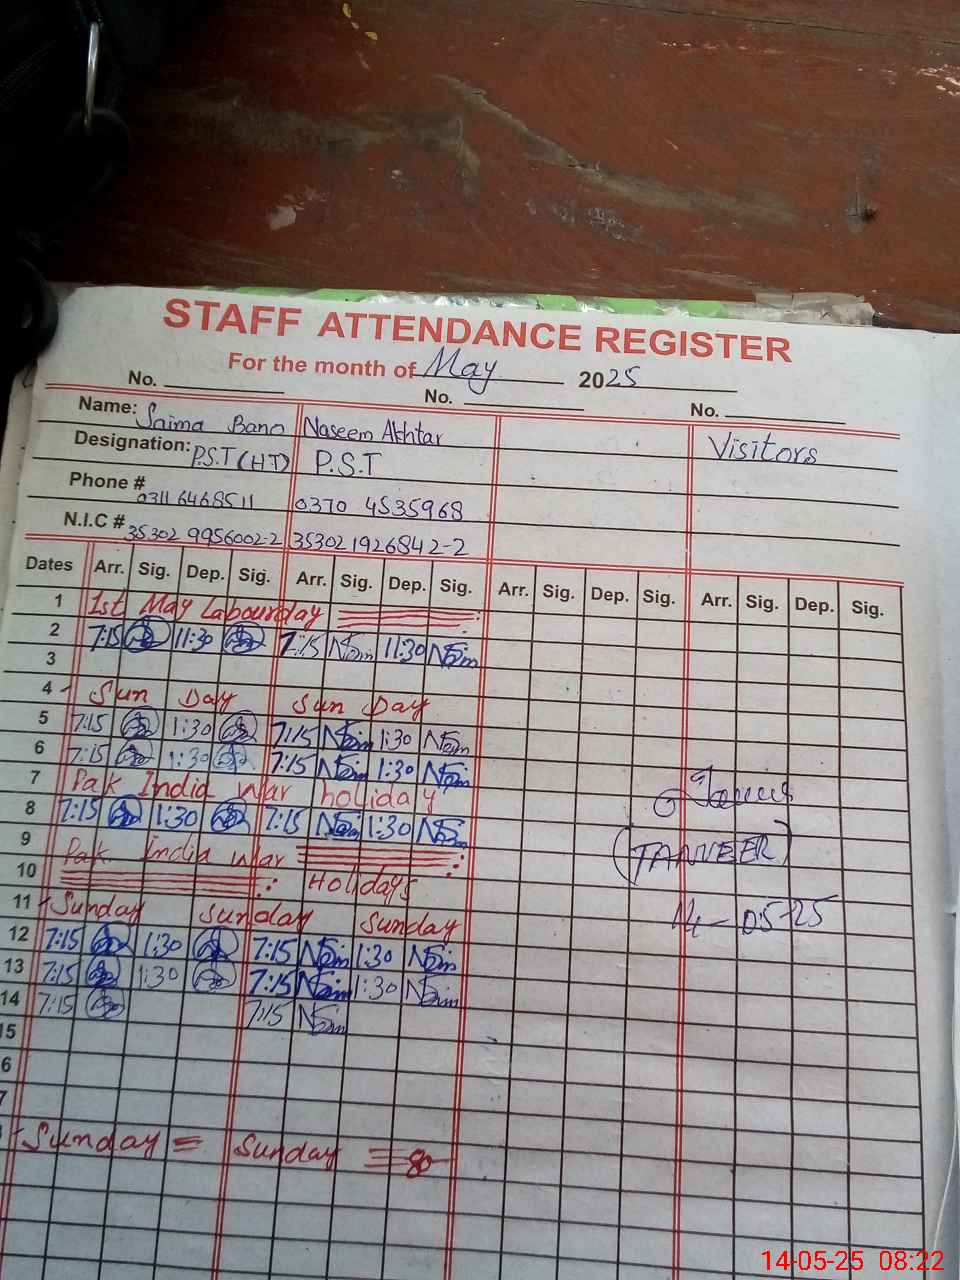 STAFF ATTENDANCE REGISTER
For the month of May 2025
No. No. No.
Name: Saima Bano Naseem Akhtar Visitors
Designation: P.S.T (H.T) P.S.T
Phone # 0311 6468511 0370 4535968
N.I.C # 35302 9956002-2 35302 1926842-2
Dates Arr. Sig. Dep. Sig. Arr. Sig. Dep. Sig. Arr. Sig. Dep. Sig. Arr. Sig. Dep. Sig.
1 1st May Labourday
2 7:15 11:30 7:15 11:30
3
4 Sun Day Sun Day
5 7:15 1:30 7:15 1:30
6 7:15 1:30 7:15 1:30
7 Pak India War holiday
8 7:15 1:30 7:15 1:30
9 Pak India War
(TANVEER)
10 Holidays
11 Sunday Sunday Sunday
14-05-25
12 7:15 1:30 7:15 1:30
13 7:15 1:30 7:15 1:30
14 7:15 7:15
15
6
7
Sunday = Sunday
14-05-25 08:22